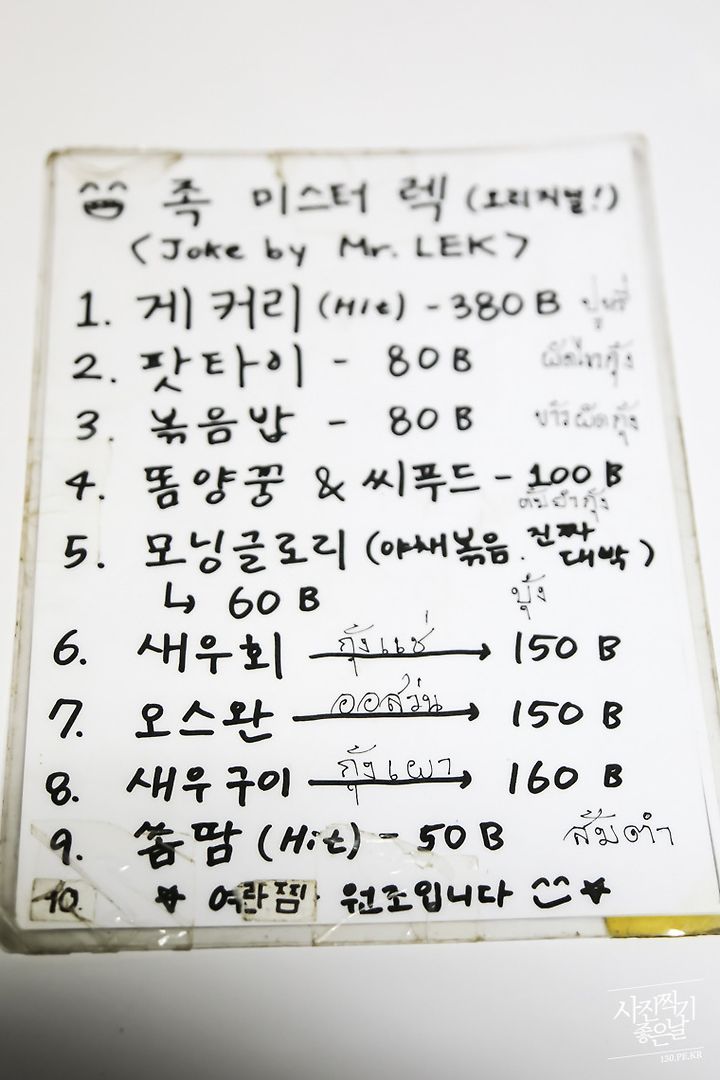 족 미스터 렉 (오리지널!)
<Joke by Mr. LEK>
1. 게 커리 (Hit) - 380 B
2. 팟타이 - 80 B ผัดไทกุ้ง
3. 볶음밥 - 80 B ข้าวผัดกุ้ง
4. 똠양꿍 & 씨푸드 - 100 B
ต้มยำกุ้ง
5. 모닝글로리 (야채볶음. 진짜 대박)
↳ 60 B
6. 새우회 กุ้งแช่ → 150 B
7. 오스완 ออส่วน → 150 B
8. 새우구이 กุ้งเผา → 160 B
9. 쏨땀 (Hit) - 50 B ส้มตำ
10. ★ 여란찜. 원조입니다 ^^ ★
사진찍기
좋은날
130.PE.KR